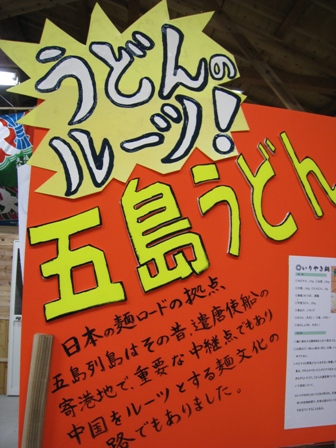 うどんの
ルーツ!
五島うどん
日本の麺ロードの拠点
五島列島はその昔、遣唐使船の
寄港地で、重要な中継点でもあり
中国をルーツとする麺文化の
路でもありました。
◎いりやき鍋